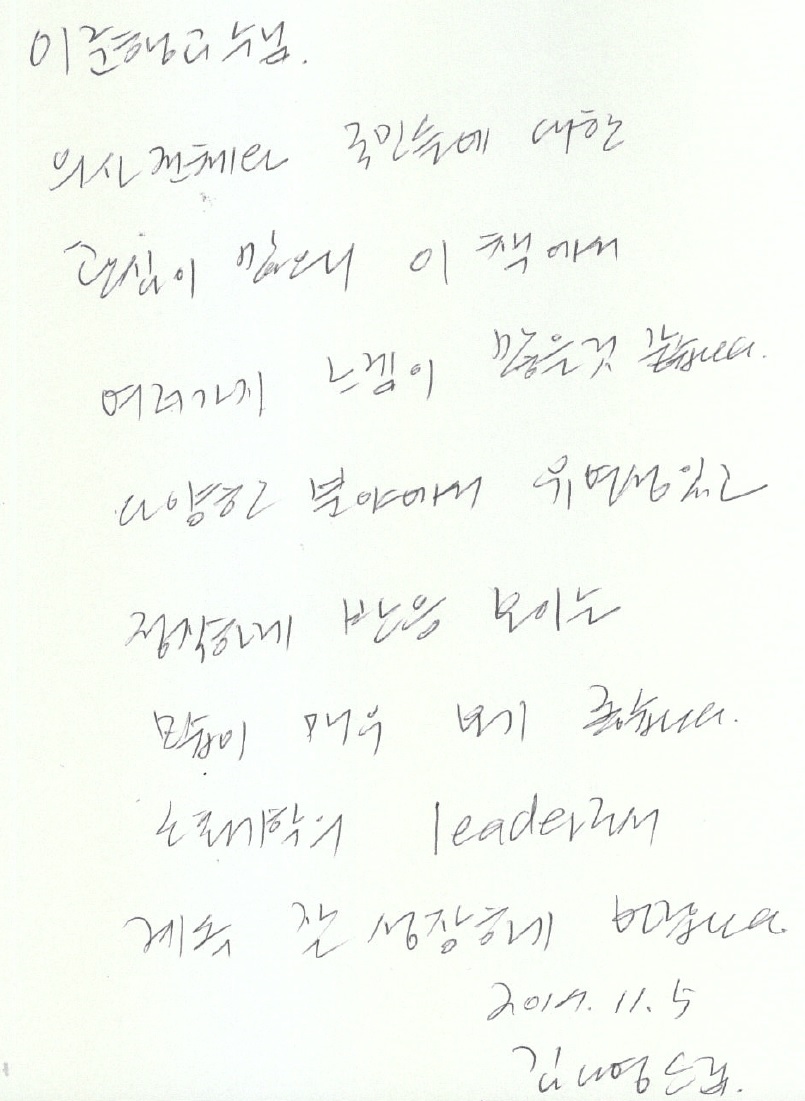 이준행교수님.
의사 전체와 국민들에 대한
관심이 많으니 이 책에서
여러가지 느낌이 많을것 같습니다.
다양한 분야에서 유연성있고
정직하게 반응 보이는
모습이 매우 보기 좋습니다.
leader로서
계속 잘 성장하게 바랍니다
11. 5
드림.